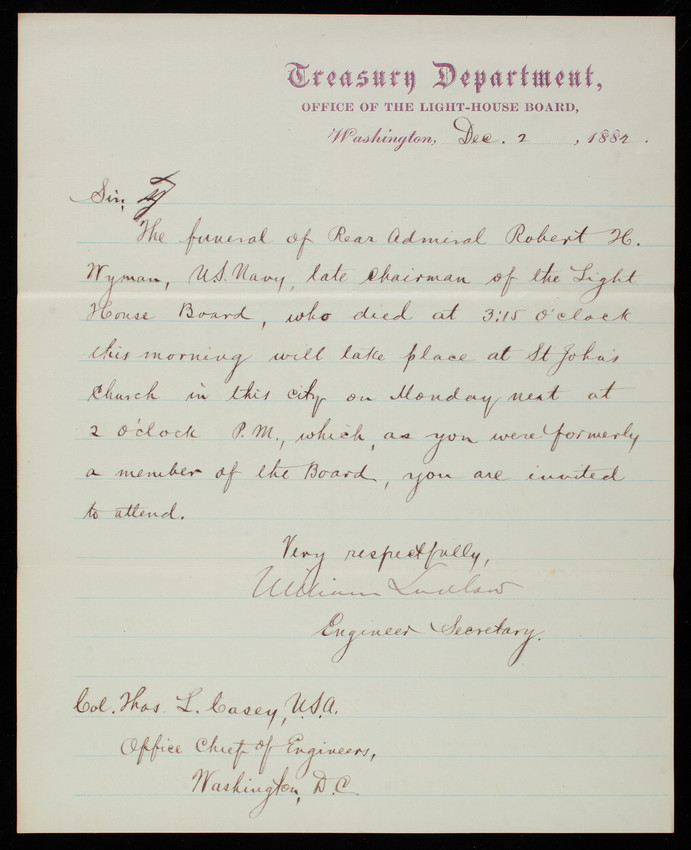 Treasury Department,
OFFICE OF THE LIGHT-HOUSE BOARD,
Washington, Dec. 2, 1882.
Sir;
The funeral of Rear Admiral Robert H.
Wyman, U.S. Navy, late chairman of the Light
House Board, who died at 3:15 o'clock
this morning will take place at St John's
Church in this city on Monday next at
2 o'clock P.M., which, as you were formerly
a member of the Board, you are invited
to attend.
Very respectfully,
William Ludlow
Engineer Secretary.
Col. Thos. L. Casey, U.S.A.
Office Chief of Engineers,
Washington, D.C.